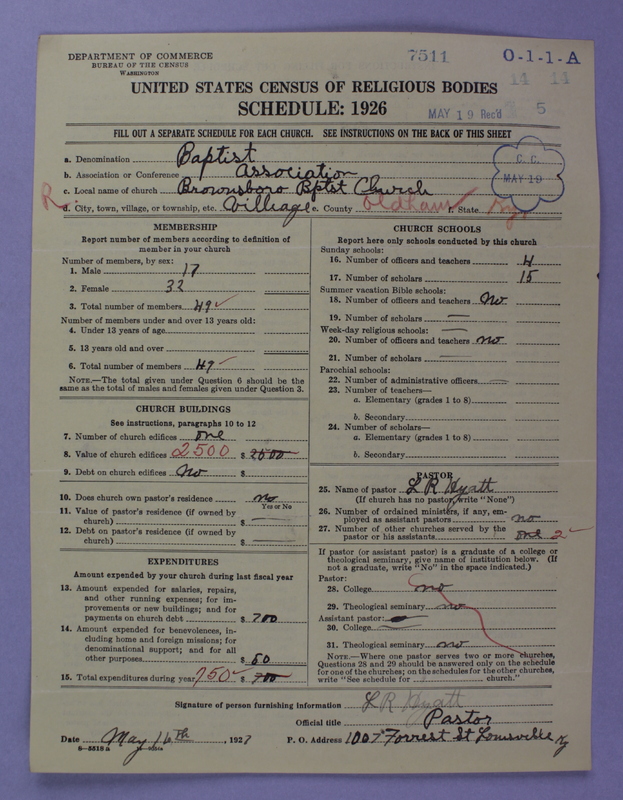 DEPARTMENT OF COMMERCE
BUREAU OF THE CENSUS
WASHINGTON
7511
O-1-1-A
14 14
UNITED STATES CENSUS OF RELIGIOUS BODIES
SCHEDULE: 1926
MAY 19 Rec'd 5
FILL OUT A SEPARATE SCHEDULE FOR EACH CHURCH. SEE INSTRUCTIONS ON THE BACK OF THIS SHEET
C. C.
MAY 19
a. Denomination Baptist
b. Association or Conference Association
c. Local name of church Brownsboro Bptst Church
R. d. City, town, village, or township, etc. Villiage e. County Oldham f. State Ky.
MEMBERSHIP
Report number of members according to definition of
member in your church
Number of members, by sex:
1. Male 17
2. Female 32
3. Total number of members 49
Number of members under and over 13 years old:
4. Under 13 years of age
5. 13 years old and over
6. Total number of members 49
NOTE.—The total given under Question 6 should be the
same as the total of males and females given under Question 3.
CHURCH BUILDINGS
See instructions, paragraphs 10 to 12
7. Number of church edifices one
8. Value of church edifices 2500 $ 2500
9. Debt on church edifices No $
10. Does church own pastor's residence no
Yes or No
11. Value of pastor's residence (if owned by
church) $ —
12. Debt on pastor's residence (if owned by
church) $ —
EXPENDITURES
Amount expended by your church during last fiscal year
13. Amount expended for salaries, repairs,
and other running expenses; for im-
provements or new buildings; and for
payments on church debt $ 700
14. Amount expended for benevolences, in-
cluding home and foreign missions; for
denominational support; and for all
other purposes $ 50
15. Total expenditures during year 750 $ 700
CHURCH SCHOOLS
Report here only schools conducted by this church
Sunday schools:
16. Number of officers and teachers 4
17. Number of scholars 15
Summer vacation Bible schools:
18. Number of officers and teachers No
19. Number of scholars —
Week-day religious schools: —
20. Number of officers and teachers no
21. Number of scholars —
Parochial schools:
22. Number of administrative officers —
23. Number of teachers—
a. Elementary (grades 1 to 8)
b. Secondary
24. Number of scholars—
a. Elementary (grades 1 to 8)
b. Secondary
PASTOR
25. Name of pastor L R Hyatt
(If church has no pastor, write "None")
26. Number of ordained ministers, if any, em-
ployed as assistant pastors no
27. Number of other churches served by the
pastor or his assistants one 2
If pastor (or assistant pastor) is a graduate of a college or
theological seminary, give name of institution below. (If
not a graduate, write "No" in the space indicated.)
Pastor:
28. College no
29. Theological seminary no
Assistant pastor:
30. College
31. Theological seminary no
NOTE.—Where one pastor serves two or more churches,
Questions 28 and 29 should be answered only on the schedule
for one of the churches; on the schedules for the other churches,
write "See schedule for church."
Signature of person furnishing information L R Hyatt
Official title Pastor
Date May 16th, 1927 P. O. Address 1007 Forrest St Louisville Ky
8-5518 a